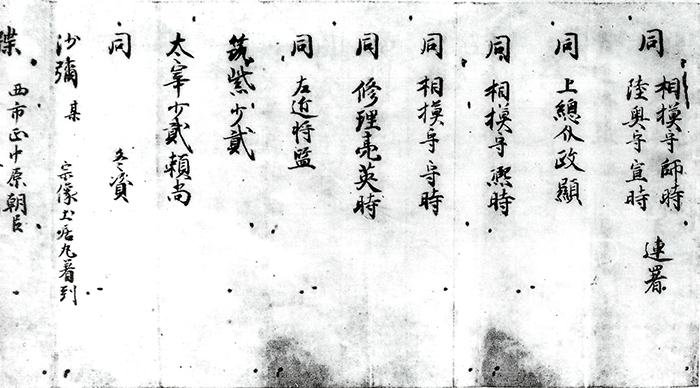 同 相摸守師時
陸奥守宣時 連署
同 上總介政顯
同 相摸守熈時
同 相摸守守時
同 修理亮英時
同 左近将監
筑紫少貳
太宰少貳頼尚
同 冬資
沙彌某 宗像土居丸着到
牒 西市正中原朝臣